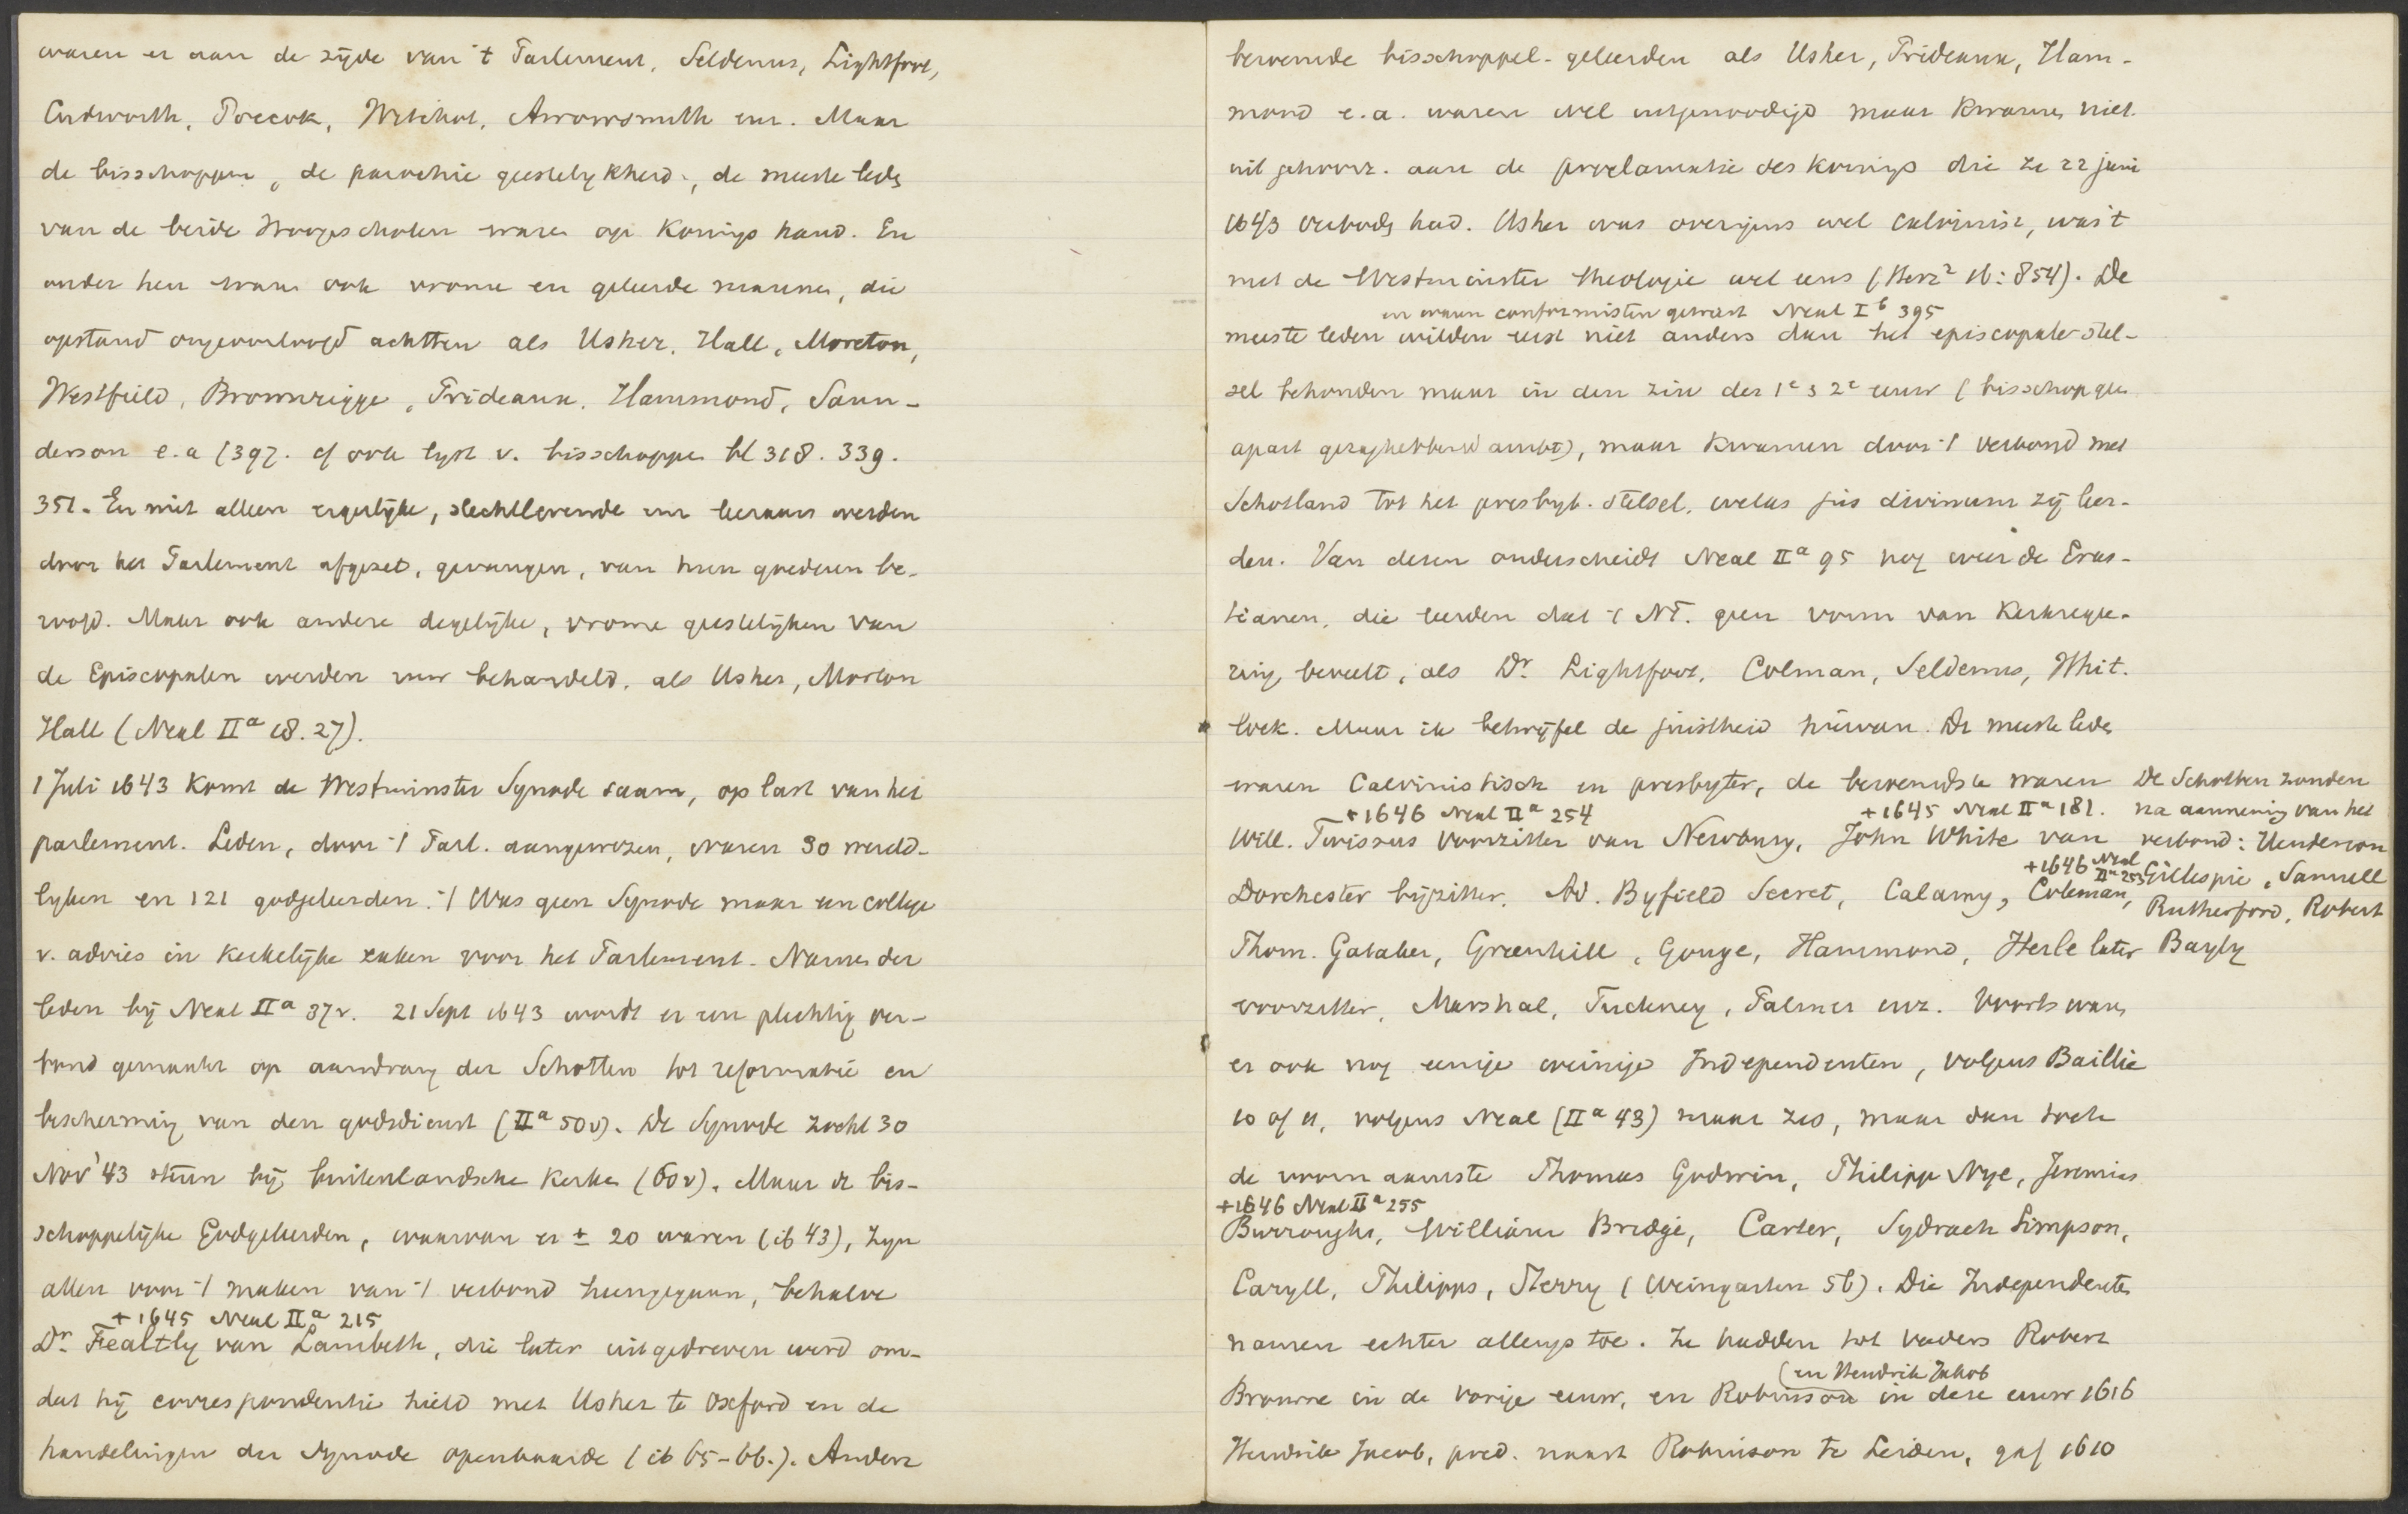 waren er aan de zijde van 't Parlement, Seldenus, Lightfoot,
Cudworth, Pocock, Witchot, Arrowsmith enz. Maar
de bisschoppen, de parochie geestelykheid, de meeste leden
van de beide Hoogescholen waren op Konings hand. En
onder hen waren ook vrome en geleerde mannen, die
opstand ongeoorloofd achtten als Usher, Hall, Moreton,
Westfield, Brownrigge, Prideaux, Hammond, Saun-
derson e.a (397. cf ook lyst v. bisschoppen bl 318. 339.
351. En niet alleen ergelijke, slechtlevende enz leeraars werden
door het Parlement afgezet, gevangen, van hun goederen be-
roofd. Maar ook andere degelijke, vrome geestelijken van
de Episcopalen werden zoo behandeld, als Usher, Morton
Hall (Neal IIa 18. 27).
1 Juli 1643 komt de Westminster Synode saam, op last van het
parlement. Leden, door 't Parl. aangewezen, waren 30 wereld-
lyken en 121 godgeleerden. 't Was geen Synode maar een college
v. advies in kerkelijke zaken voor het Parlement. Namen der
leden bij Neal IIa 37v. 21 Sept 1643 wordt er een plechtig ver-
bond gemaakt op aandrang der Schotten tot reformatie en
bescherming van den godsdienst (IIa 50v). De Synode zocht 30
Nov '43 steun bij buitenlandsche kerken (60v). Maar de bis-
schoppelijke Godgeleerden, waarvan er ± 20 waren (ib 43), zyn
allen voor 't maken van 't verbond heengegaan, behalve
+ 1645 Neal IIa 215
Dr. Fealtly van Lambeth, die later uitgedreven werd om-
dat hij correspondentie hield met Usher te Oxford en de
handelingen der Synode openbaarde (ib 65-66.). Andere
beroemde bisschoppel. geleerden als Usher, Prideaux, Ham-
mond e.a. waren wel uitgenoodigd maar kwamen niet
uit gehoorz. aan de proclamatie des Konings die ze 22 juni
1643 verboden had. Usher was overigens wel calvinist, was 't
met de Westminster theologie wel eens (Herz2 16:854). De
en waren conformisten geweest Neal Ib 395
meeste leden wilden eerst niet anders dan het episcopale stel-
sel behouden maar in den zin der 1e & 2e eeuw (bisschop geen
apart gezaghebbend ambt), maar kwamen door 't verbond met
Schotland tot het presbyt. stelsel, welks jus divinum zij leer-
den. Van dezen onderscheidt Neal IIa 95 nog weer de Eras-
tianen, die leerden dat 't NT. geen vorm van Kerkregee-
ring beveelt, als Dr. Lightfoot, Colman, Seldenus, Whit.
lock. Maar ik betwijfel de juistheid hiervan. De meeste leden
waren Calvinistisch en presbyter, de beroemdste waren
+1646 Neal IIa 254 +1645 Neal IIa 181.
Will. Twissus voorzitter van Newbury, John White van
+1646 Neal IIa 253
Dorchester bijzitter, Ad. Byfield Secret, Calamy, Coleman,
Thom. Gataker, Greenhill, Gouge, Hammond, Herle later
voorzitter, Marshal, Tuckney, Palmer enz. Voorts waren
De Schotten zonden
na aanneming van het
verbond: Henderson
Gillespie, Samuell
Rutherford, Robert
Bayly
er ook nog eenige weinige Independenten, volgens Baillie
10 of 11, volgens Neal (IIa 43) maar zes, maar dan toch
de voornaamste Thomas Godwin, Philipp Nye, Jeremias
+1646 Neal IIa 255
Burroughs, William Bredge, Carter, Sydrach Simpson,
Caryll, Philipps, Sterry (Weingarten 56). Die Independenten
namen echter allengs toe. Ze hadden tot vaders Robert
(en Hendrik Jakob
Browne in de vorige eeuw, en Robinson in deze eeuw 1616
Hendrik Jacob, pred. naast Robinson te Leiden, gaf 1610